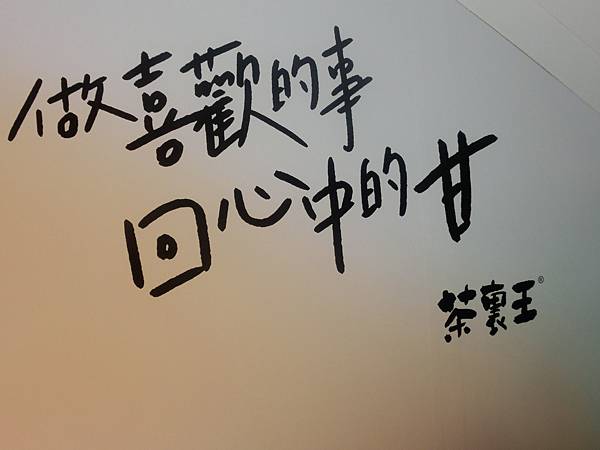 做喜歡的事
回心中的甘
茶裏王®